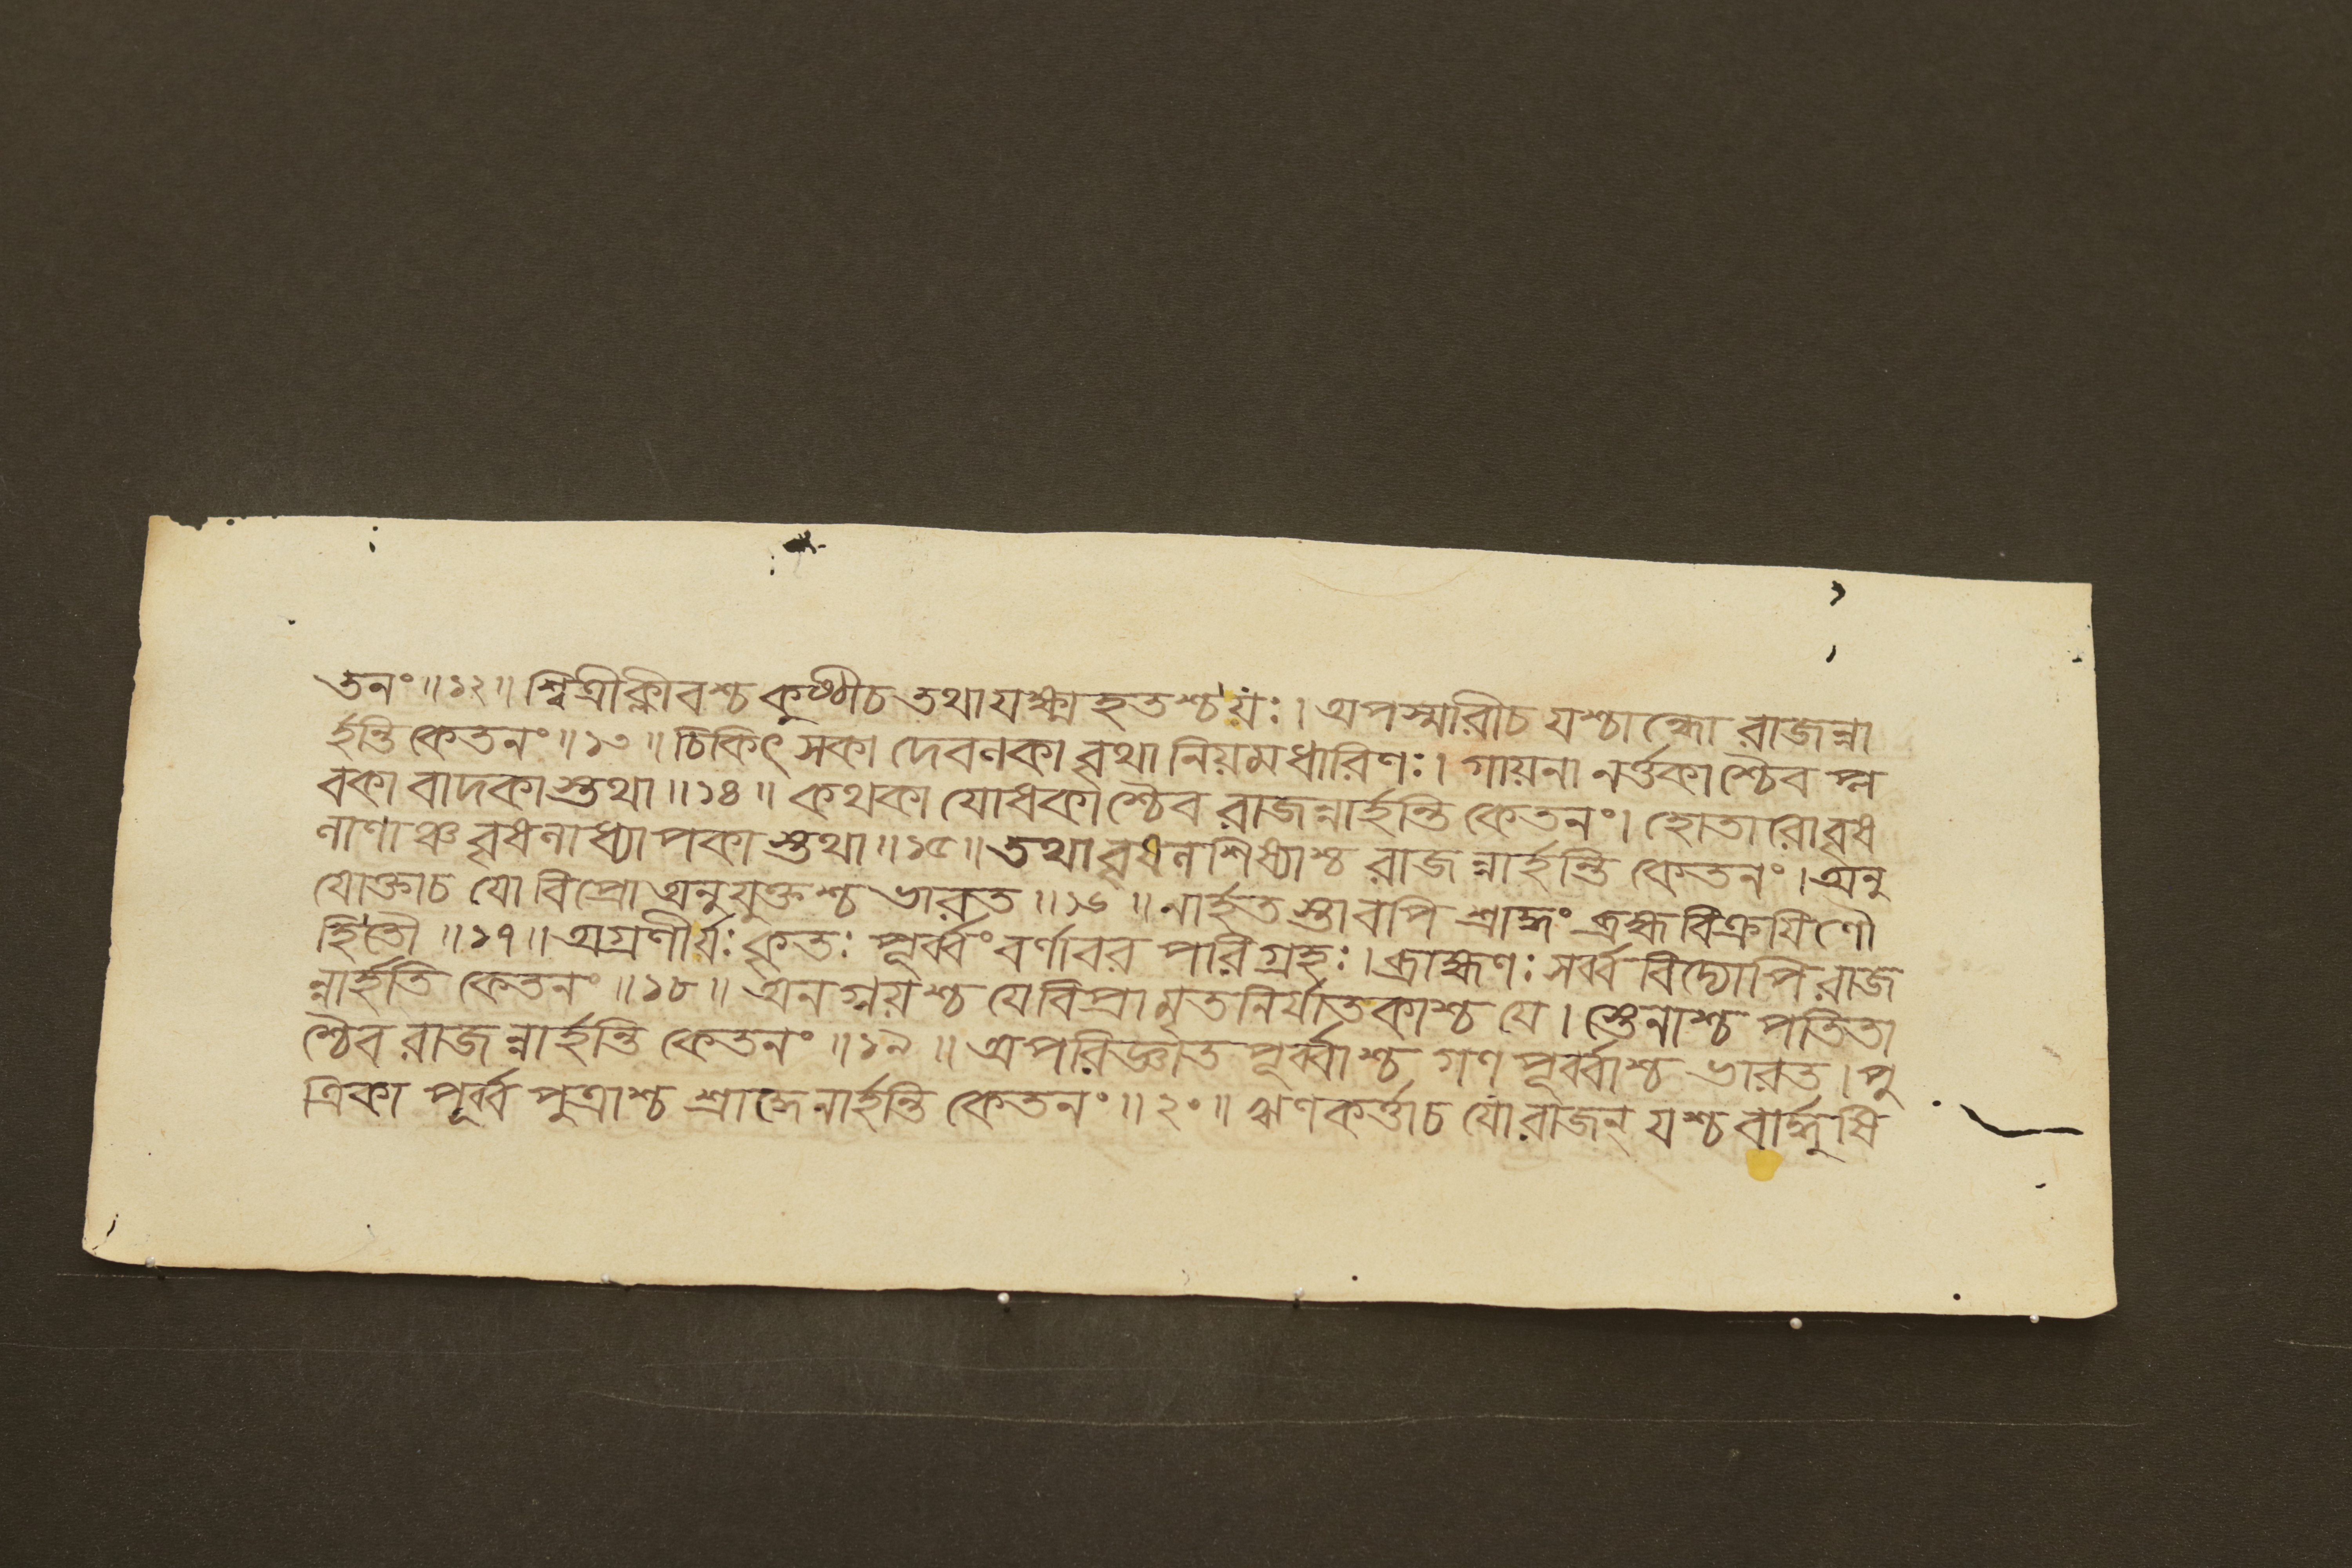 তনং ॥১২॥ শ্বিত্রীক্লীবশ্চ কুষ্ঠীচ তথা যক্ষ্মহতশ্চ যঃ। অপস্মারীচ যশ্চান্ধো রাজন্না
র্হন্তি কেতনং ॥১৩॥ চিকিৎসকা দেবণকা বৃথা নিয়মধারিণঃ। গায়না নর্ত্তকাশ্চৈব প্ল
বকা বাদকাস্তথা ॥১৪॥ কথকা যোধকাশ্চৈব রাজন্নার্হন্তি কেতনং। হোতারো বৃষ
নাণাঞ্চ বৃষনাধ্যাপকাস্তথা ॥১৫॥ তথা বৃষন শিষ্যাশ্চ রাজন্নার্হন্তি কেতনং। অনু
যোক্তাচ যো বিপ্রো অনুযুক্তশ্চ ভারত ॥১৬॥ নার্হতস্তাবপি শ্রাদ্ধং ব্রহ্মবিক্রয়িণৌ
হিতৌ ॥১৭॥ অগ্রণীর্যঃ কৃতঃ পূর্ব্বং বর্ণাবর পরিগ্রহঃ। ব্রাহ্মণঃ সর্ব্ববিদ্যোপি রাজ
ন্নার্হতি কেতনং ॥১৮॥ অনগ্নয়শ্চ যেবিপ্রা মৃতনির্যাতকাশ্চ যে। স্তেনাশ্চ পতিতা
শ্চৈব রাজন্নার্হন্তি কেতনং ॥১৯॥ অপরিজ্ঞাত পূর্ব্বাশ্চ গণ পূর্ব্বাশ্চ ভারত। পু
ত্রিকা পূর্ব্ব পুত্রাশ্চ শ্রাদ্ধেনার্হন্তি কেতনং ॥২০॥ ঋণকর্ত্তাচ যোরাজন্ যশ্চ বার্দ্ধুষি